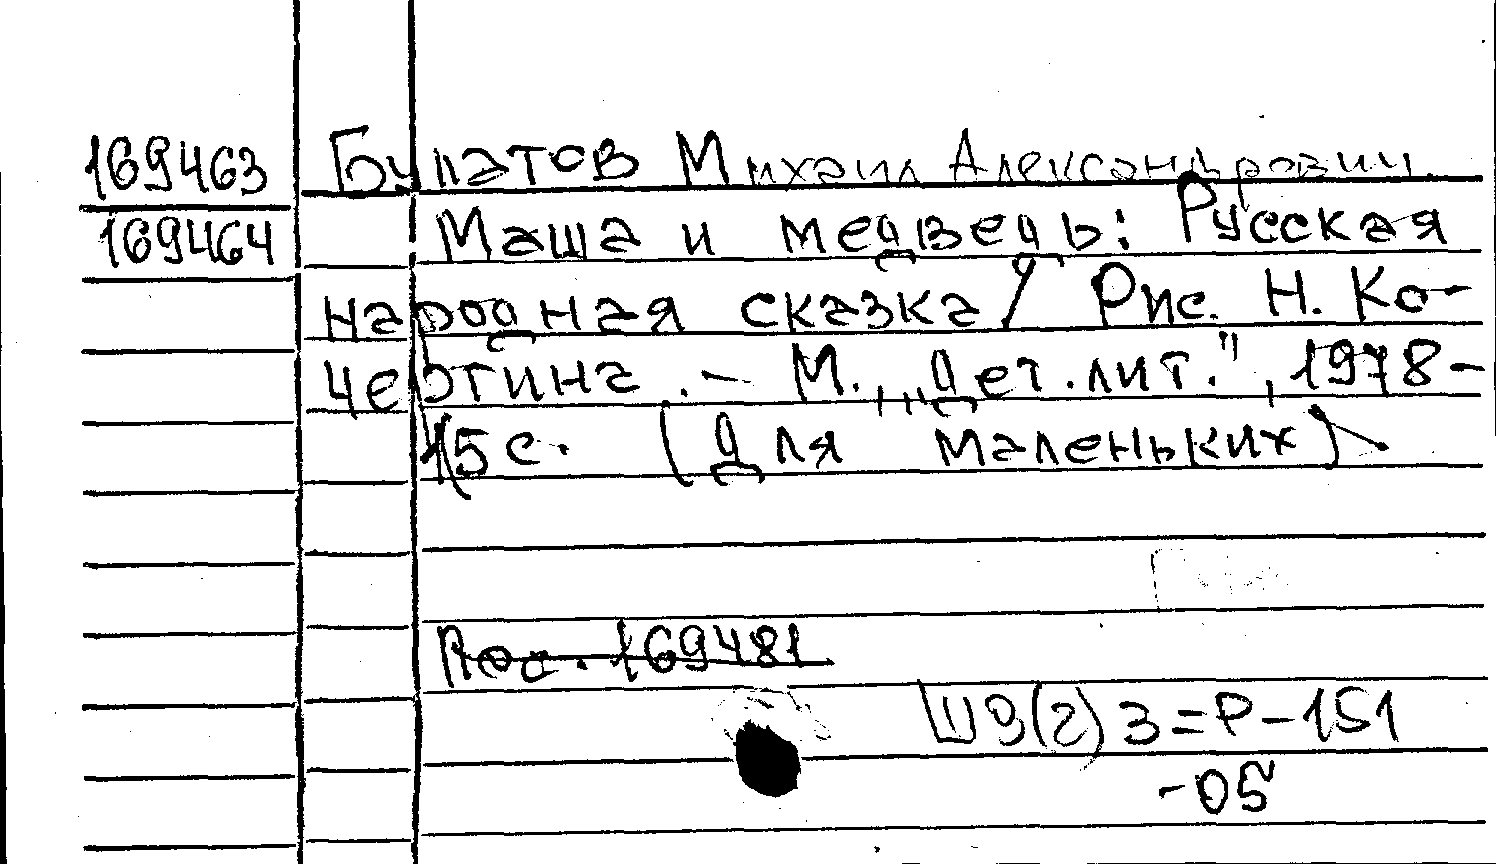 169463 Булатов Михаил Александрович.
169464 Маша и медведь: Русская
народная сказка/ Рис. Н. Ко-
чергина. - М., „Дет. лит.", 1978-
15с. (Для маленьких).
169481
Ш9(2)3=Р-151
-05